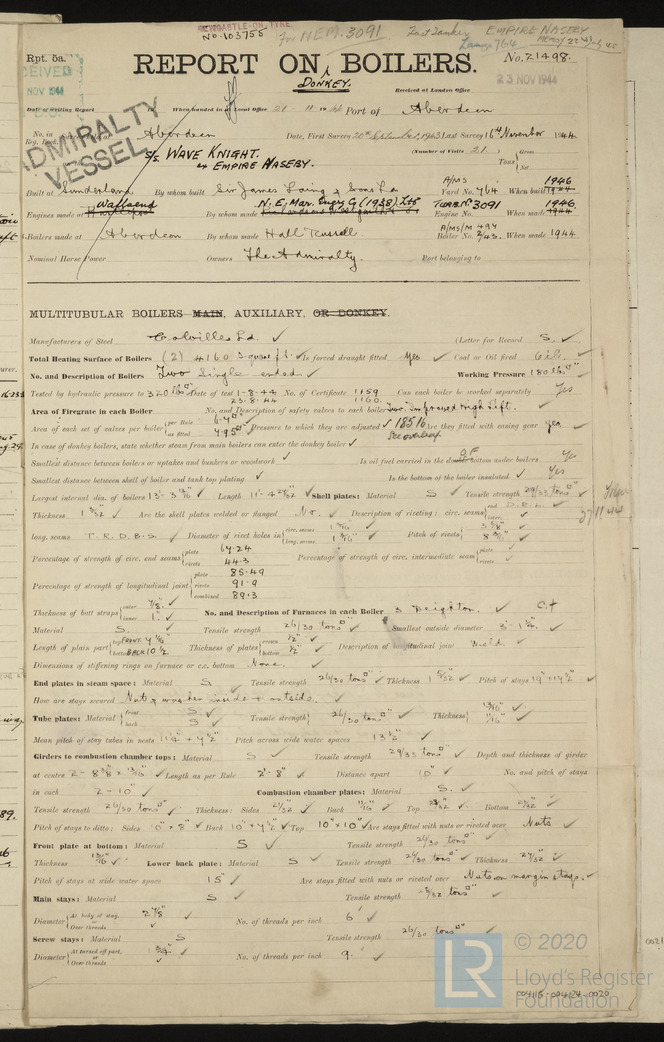 NEWCASTLE-ON-TYNE
No. 103755 For MEM. 3091 EMPIRE NASEBY
Rpt. 5a. Laings 764
REPORT ON BOILERS. No. 21498.
DONKEY.
NOV 1944 23 NOV 1944
Received at London Office
Date of Writing Report When handed in at Local Office 21 11 1944 Port of Aberdeen
ADMIRALTY VESSEL
No. in Reg. Book Aberdeen Date, First Survey Last Survey 16th November 1944
(Number of Visits 21.) Gross Tons Net
S/S WAVE KNIGHT.
ex EMPIRE NASEBY.
Built at Sunderland By whom built Sir James Laing & Sons Ld Yard No. 764 When built 1946
Engines made at Wallsend By whom made N.E. Mar. Engrg Co (1938) Ltd Engine No. 3091 When made 1946
Boilers made at Aberdeen By whom made Hall Russell Boiler No. When made 1944
Nominal Horse Power Owners The Admiralty. Port belonging to
MULTITUBULAR BOILERS MAIN, AUXILIARY, OR DONKEY.
Manufacturers of Steel Colvilles Ld. (Letter for Record S.
Total Heating Surface of Boilers (2) 4160 square ft. Is forced draught fitted Yes Coal or Oil fired Oil.
No. and Description of Boilers Two Single ended. Working Pressure 180 lbs
Tested by hydraulic pressure to 320 lbs Date of test 1-8-44 No. of Certificate 1159 Can each boiler be worked separately Yes
23.8.44 1160.
Area of Firegrate in each Boiler No. and Description of safety valves to each boiler Two Improved High Lift.
Area of each set of valves per boiler per Rule as fitted Pressure to which they are adjusted 185 lb Are they fitted with easing gear yes
See overleaf
In case of donkey boilers, state whether steam from main boilers can enter the donkey boiler
Smallest distance between boilers or uptakes and bunkers or woodwork Is oil fuel carried in the double bottom under boilers Yes
Smallest distance between shell of boiler and tank top plating Is the bottom of the boiler insulated Yes
Largest internal dia. of boilers Length Shell plates: Material S Tensile strength 29/33 tons
Thickness Are the shell plates welded or flanged No. Description of riveting: circ. seams end D.R.L. inter.
long. seams T.R.D.B.S. Diameter of rivet holes in circ. seams long. seams Pitch of rivets
Percentage of strength of circ. end seams plate 64.24 rivets 44.3 Percentage of strength of circ. intermediate seam plate rivets
Percentage of strength of longitudinal joint plate 85.49 rivets 91.9 combined 89.3
Thickness of butt straps outer 7/8 inner 1" No. and Description of Furnaces in each Boiler 3 Deighton.
Material S. Tensile strength 26/30 tons Smallest outside diameter
Length of plain part top bottom Thickness of plates crown 1/2" bottom 1/2" Description of longitudinal joint Weld.
Dimensions of stiffening rings on furnace or c.c. bottom None.
End plates in steam space: Material S Tensile strength 26/30 tons Thickness 1 5/32 Pitch of stays
How are stays secured Nuts & washer inside & outside.
Tube plates: Material front S. back S Tensile strength 26/30 tons Thickness
Mean pitch of stay tubes in nests Pitch across wide water spaces 13 1/2"
Girders to combustion chamber tops: Material S Tensile strength 29/33 tons Depth and thickness of girder
at centre Length as per Rule 2'-8" Distance apart 10" No. and pitch of stays
in each 2 - 10" Combustion chamber plates: Material S.
Tensile strength 26/30 tons Thickness: Sides 21/32 Back Top Bottom
Pitch of stays to ditto: Sides 10" x 8" Back Top 10" x 10" Are stays fitted with nuts or riveted over Nuts
Front plate at bottom: Material S Tensile strength 26/30 tons
Thickness 13/16 Lower back plate: Material S Tensile strength 26/30 tons Thickness
Pitch of stays at wide water space 15" Are stays fitted with nuts or riveted over Nuts on margin stays.
Main stays: Material S Tensile strength tons
Diameter At body of stay, or Over threads 2 7/8" No. of threads per inch 6
Screw stays: Material S Tensile strength 26/30 tons
Diameter At turned off part, or Over threads 1 3/4" No. of threads per inch 9.
© 2020
LR Lloyd's Register
Foundation
004116-004124-0020